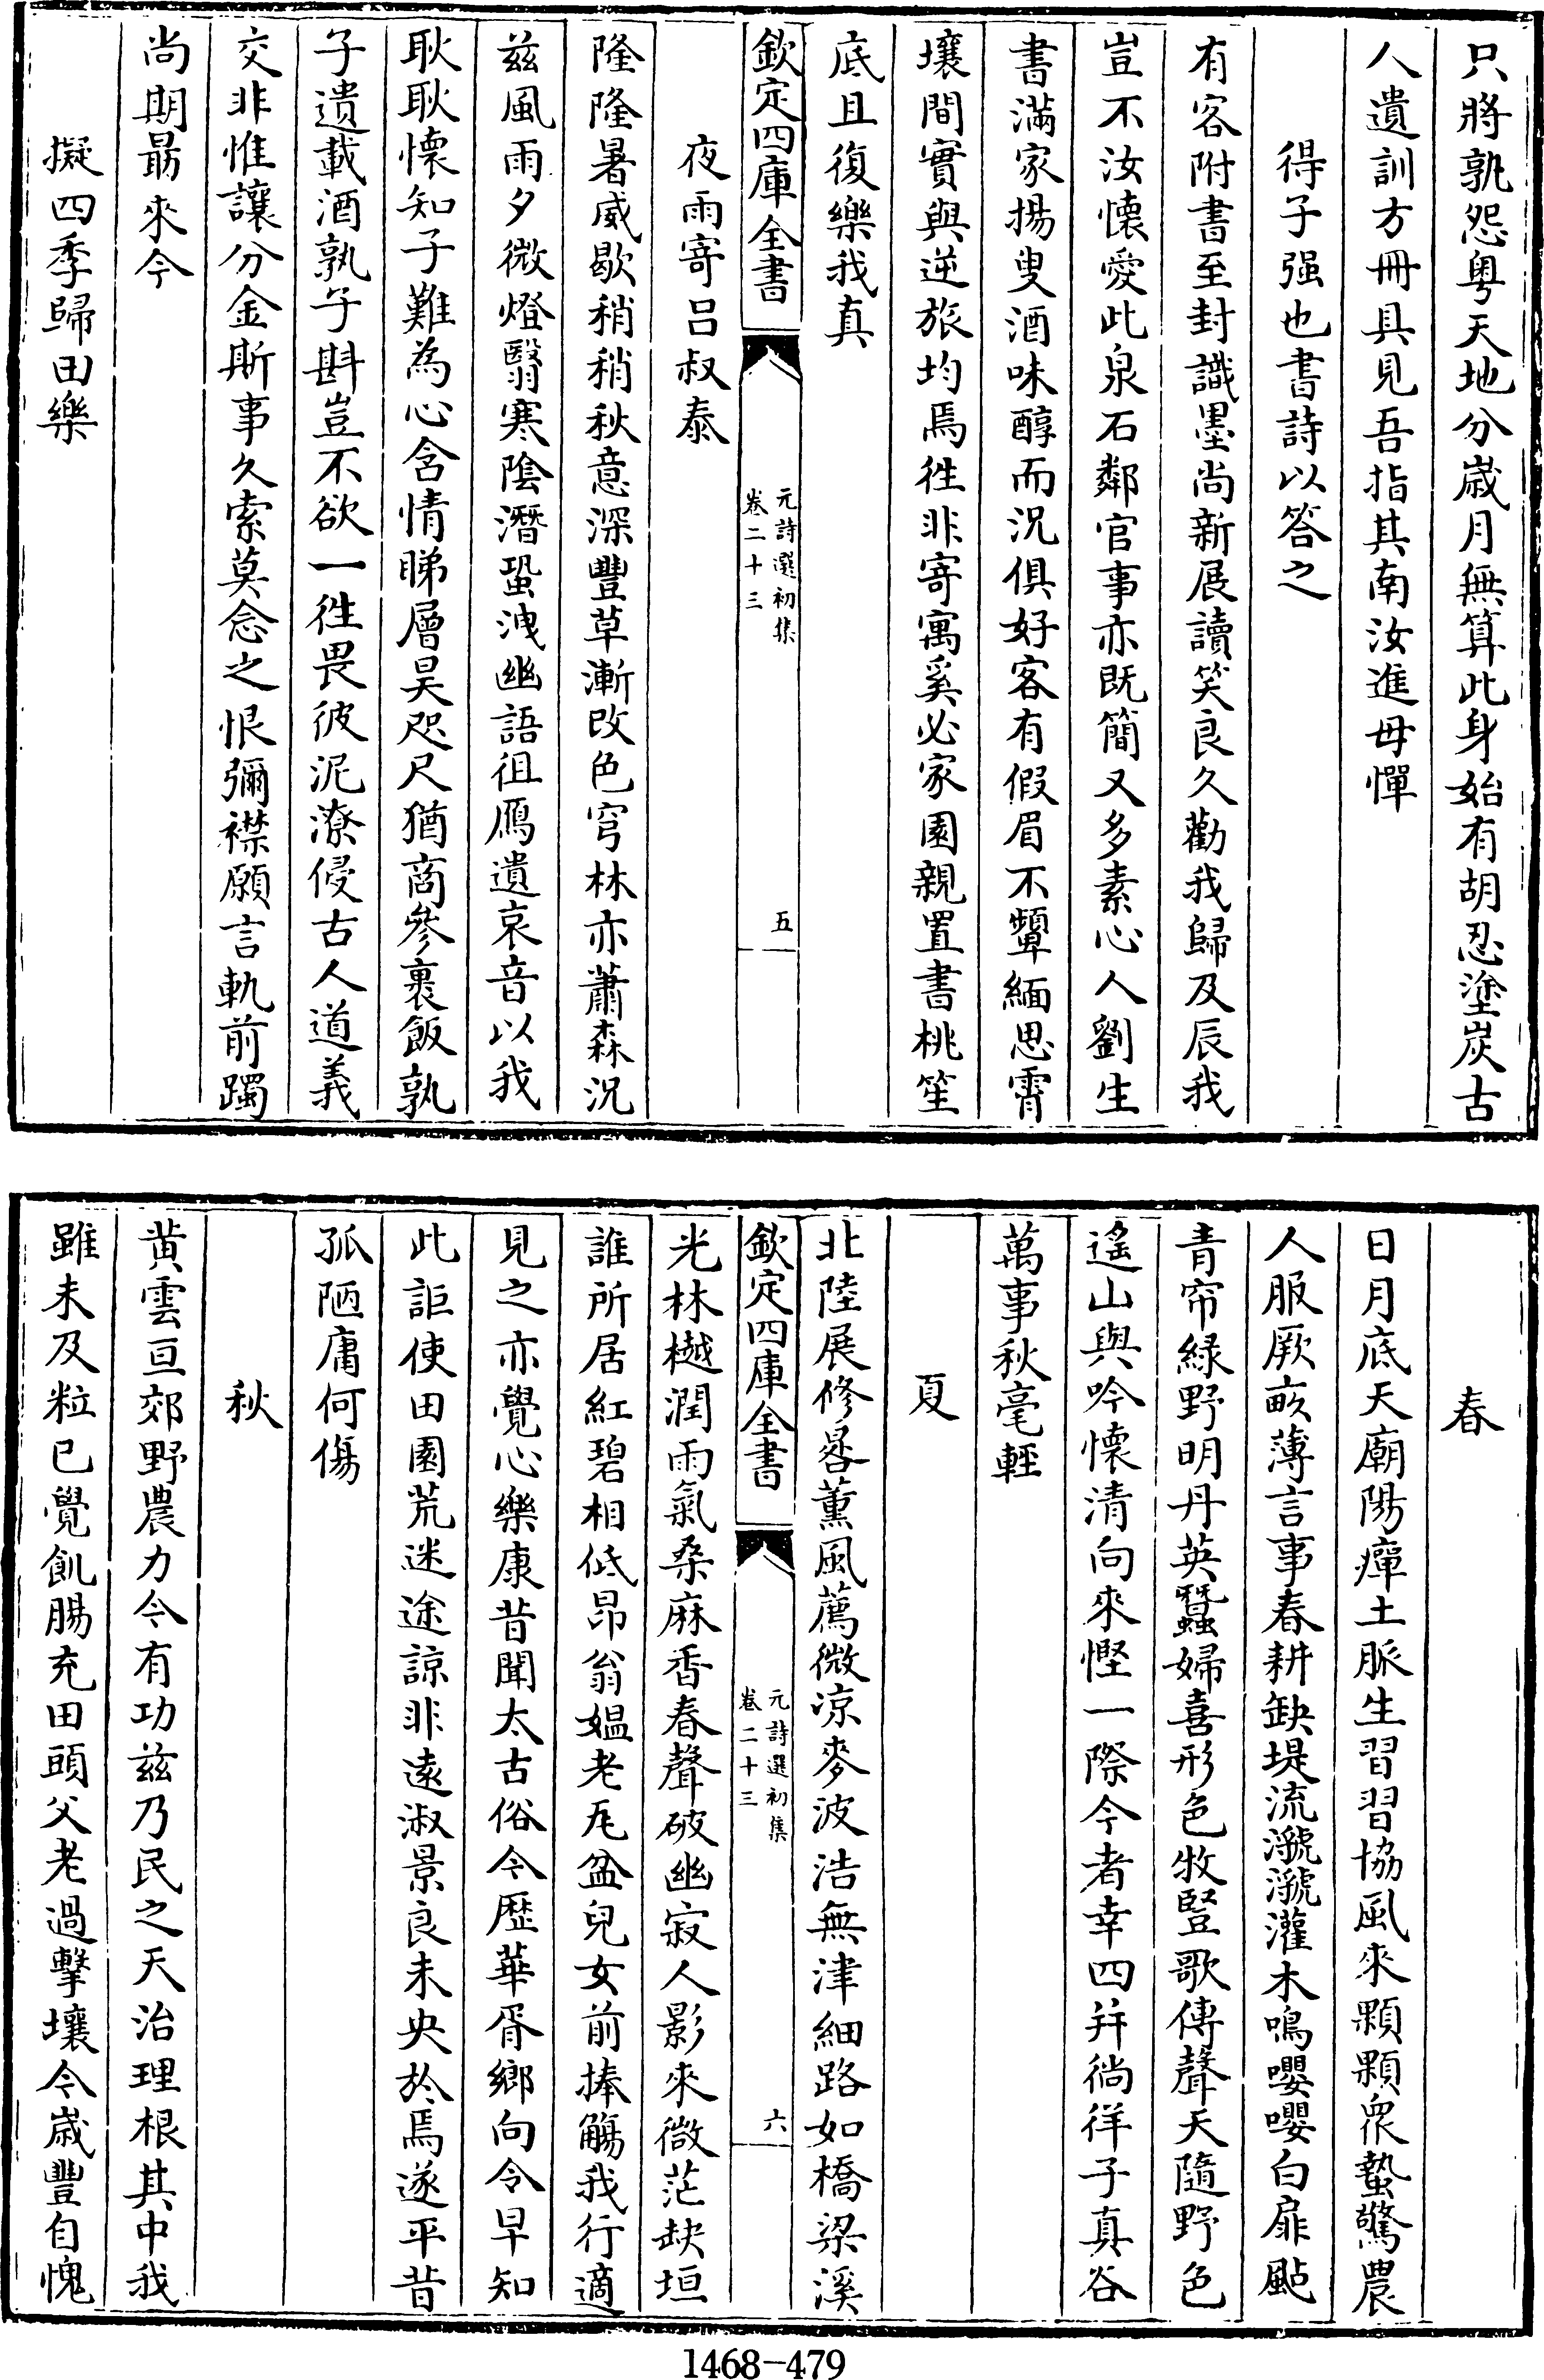 只將孰怨粤天地分歳月無算此身始有胡忍塗炭古
人遺訓方冊具見吾指其南汝進毋憚
得子强也書詩以答之
有客附書至封識墨尚新展讀笑良久勸我歸及辰我
豈不汝懐愛此泉石鄰官事亦既簡又多素心人劉生
書滿家揚叟酒味醇而況俱好客有假眉不顰緬思霄
壤間實與逆旅均焉徃非寄寓奚必家園親置書桃笙
底且復樂我真
欽定四庫全書
元詩選初集
卷二十三
五
夜雨寄吕叔泰
隆隆暑威歇稍稍秋意深豐草漸改色穹林亦蕭森況
兹風雨夕微燈翳寒隂潛蛩洩幽語徂鴈遺哀音以我
耿耿懐知子難為心含情睇層昊咫尺猶商參裹飯孰
子遺載酒孰子斟豈不欲一徃畏彼泥潦侵古人道義
交非惟讓分金斯事久索莫念之恨彌襟願言軌前躅
尚期最來今
擬四季歸田樂
春
日月底天廟陽癉土脈生習習協風來顆顆衆蟄驚農
人服厥畝薄言事春耕缺堤流㶁㶁灌木鳴嚶嚶白扉颭
青帘緑野明丹英蠶婦喜形色牧豎歌傳聲天隨野色
遙山與吟懐清向來慳一際今者幸四并徜徉子真谷
萬事秋毫輕
夏
北陸展修晷薰風薦微凉麥波浩無津細路如橋梁溪
光林樾潤雨氣桑麻香舂聲破幽寂人影來微茫缺垣
誰所居紅碧相低昂翁媼老瓦盆兒女前捧觴我行適
見之亦覺心樂康昔聞太古俗今歴華胥鄉向令早知
此詎使田園荒迷途諒非遠淑景良未央於焉遂平昔
孤陋庸何傷
秋
黄雲亘郊野農力今有功兹乃民之天治理根其中我
雖未及粒已覺飢腸充田頭父老過擊壤今歳豐自愧
1468-479